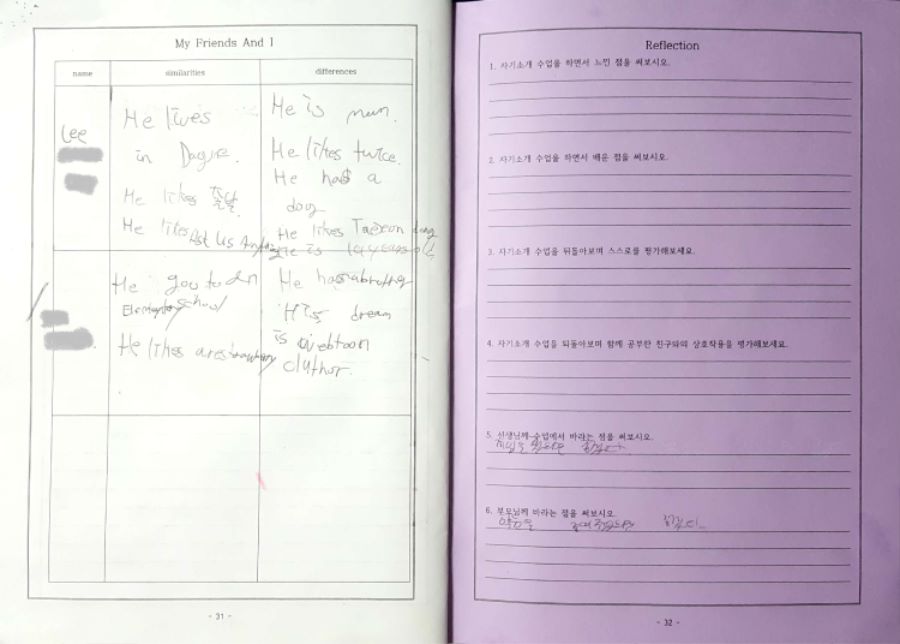 My Friends And I
name similarities differences
Lee
He lives
in Dague.
He likes 족발
He likes Ask Us Anything
He is man.
He likes twice.
He has a
dog
He likes Taekon dog
He is 14 years old.
He go to an
Elementary School
He likes a restrawberry
He has a brother
His dream
is webtoon
author.
- 31 -
Reflection
1. 자기소개 수업을 하면서 느낀 점을 써보시오.
2. 자기소개 수업을 하면서 배운 점을 써보시오.
3. 자기소개 수업을 뒤돌아보며 스스로를 평가해보세요.
4. 자기소개 수업을 되돌아보며 함께 공부한 친구와의 상호작용을 평가해보세요.
5. 선생님께 수업에서 바라는 점을 써보시오.
6. 부모님께 바라는 점을 써보시오.
- 32 -